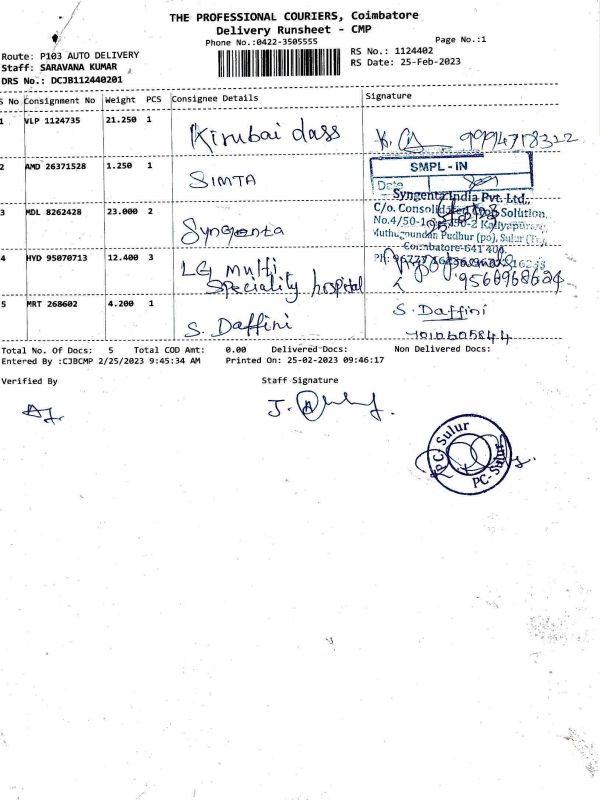 THE PROFESSIONAL COURIERS, Coimbatore
Delivery Runsheet - CMP
Phone No.:0422-3505555
Page No.:1
Route: P103 AUTO DELIVERY
RS No.: 1124402
Staff: SARAVANA KUMAR
RS Date: 25-Feb-2023
DRS No.: DCJB112440201
S No Consignment No Weight PCS Consignee Details Signature
1 VLP 1124735 21.250 1 Kirubai dass
2 AMD 26371528 1.250 1 SIMTA
SMPL - IN
Date
3 MDL 8262428 23.000 2 Syngenta
Syngenta India Pvt. Ltd.,
C/o. Consolidated Solution,
Coimbatore-641 400
4 HYD 95070713 12.400 3 LG multi
Speciality hospital
5 MRT 268602 4.200 1 S. Daffini S. Daffini
Total No. Of Docs: 5 Total COD Amt: 0.00 Delivered Docs: Non Delivered Docs:
Entered By :CJBCMP 2/25/2023 9:45:34 AM Printed On: 25-02-2023 09:46:17
Verified By Staff Signature
PC-Sulur
PC-Sulur